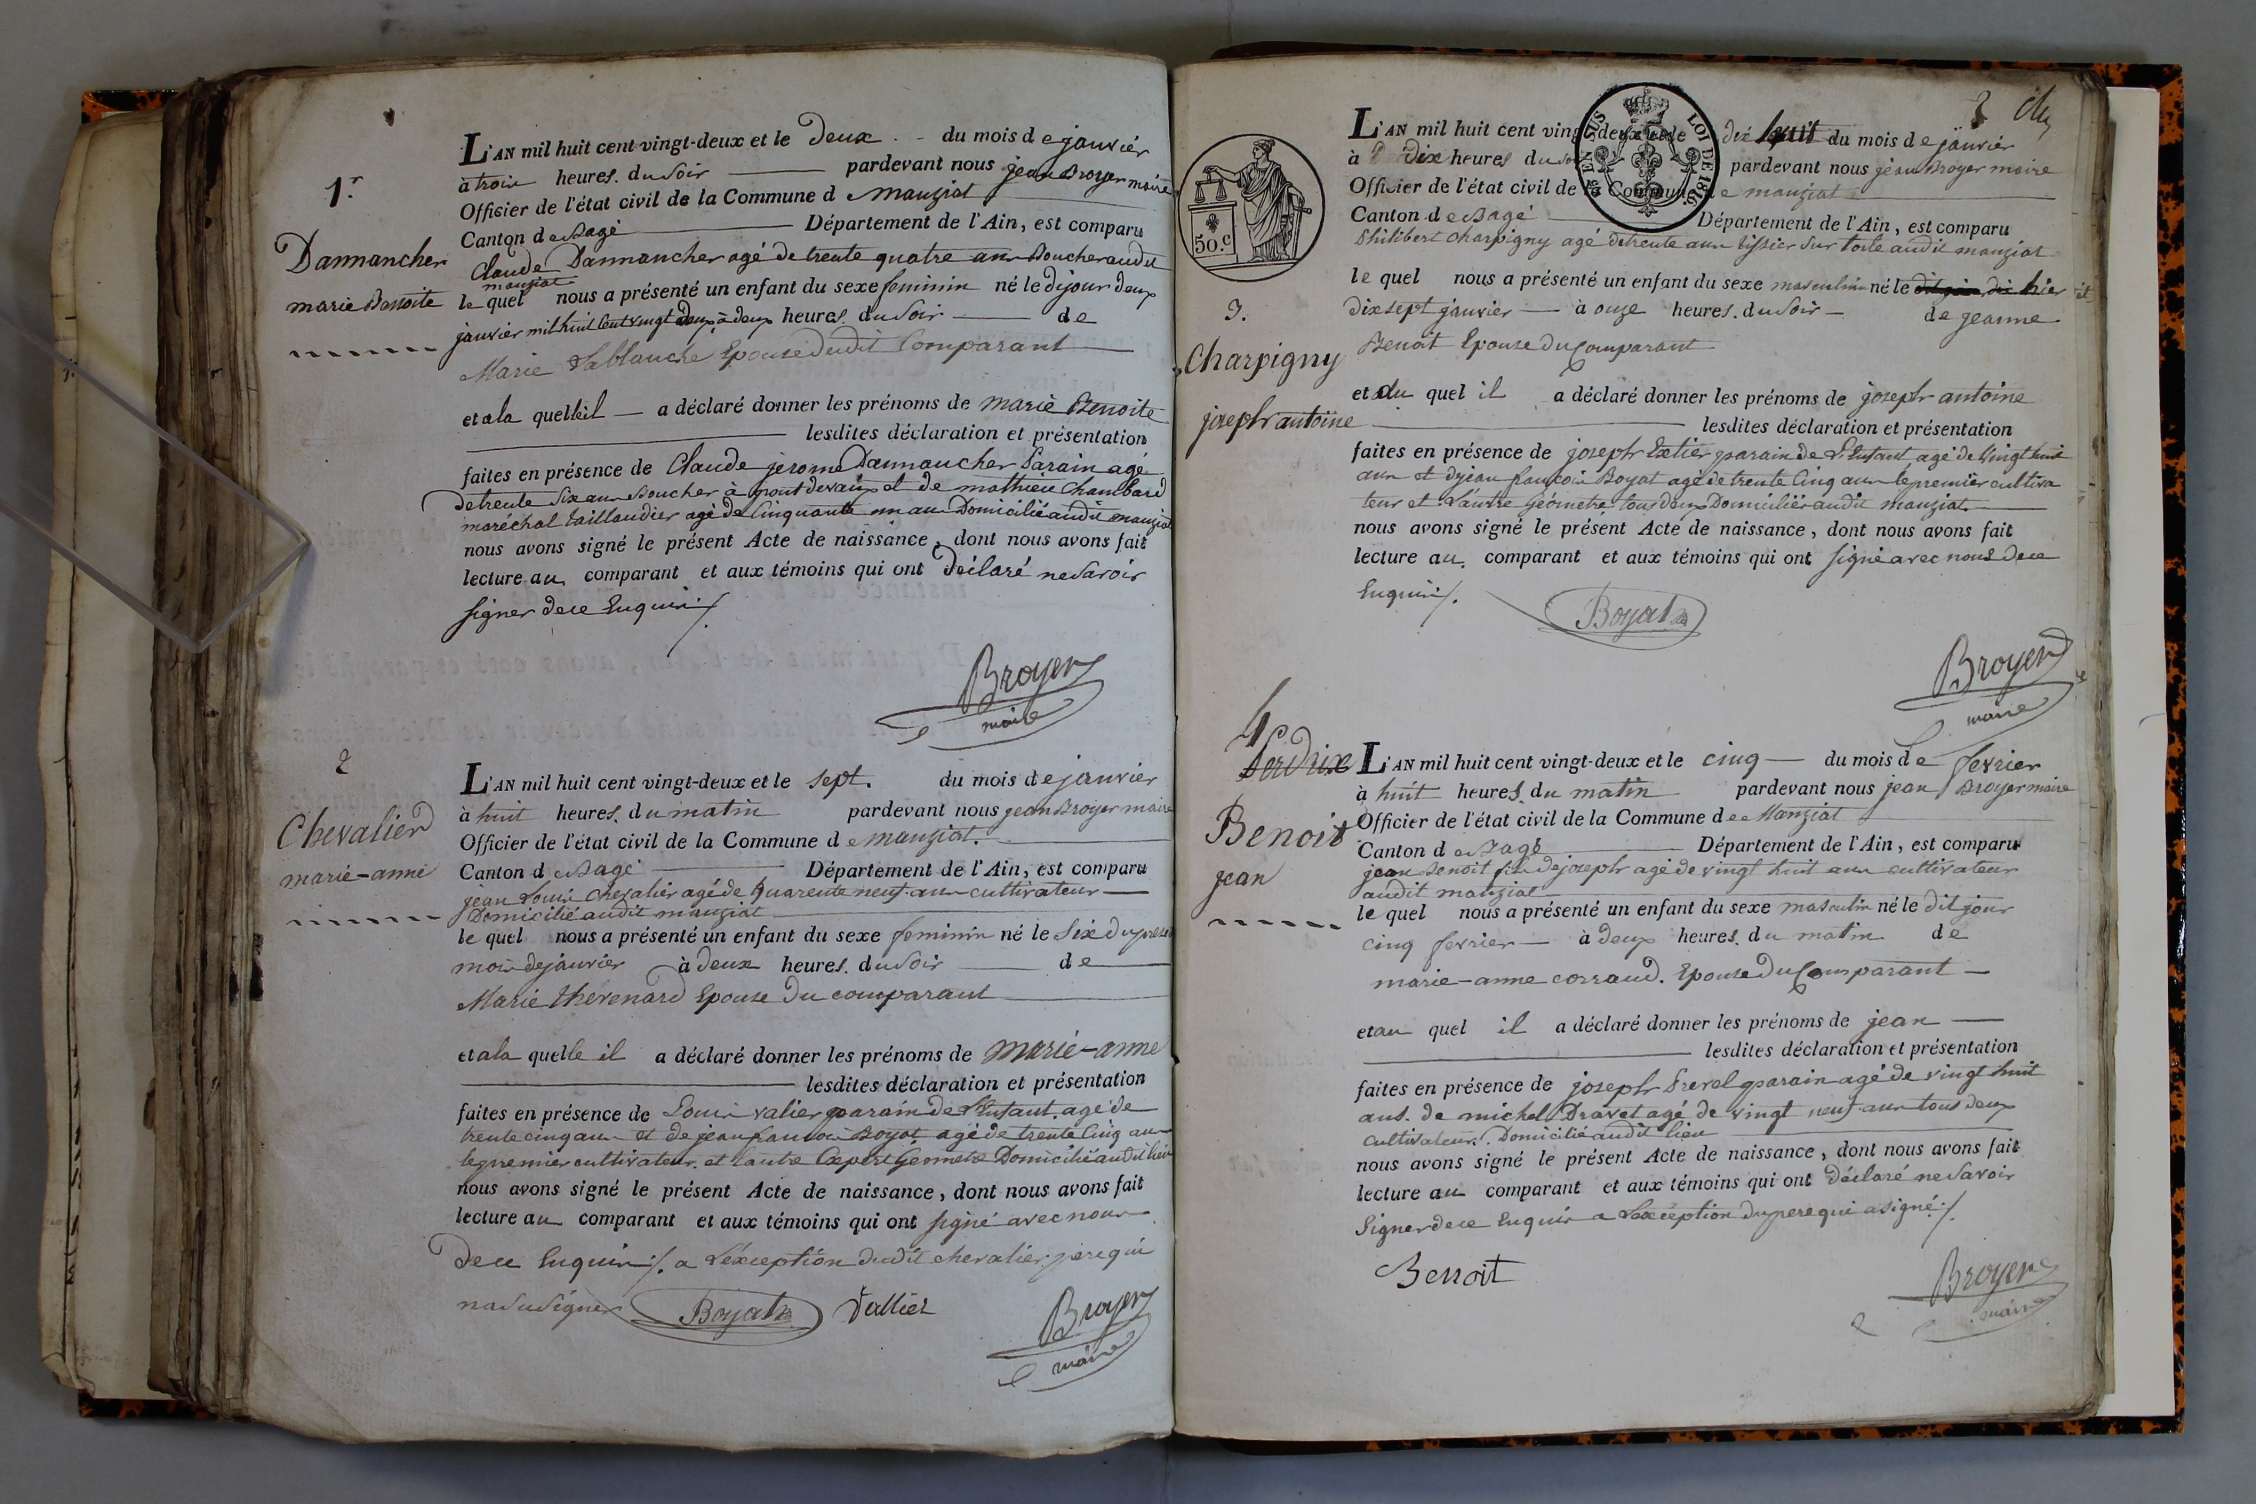 1r
Dannancher
marie Benoite
L'AN mil huit cent vingt-deux et le deux du mois de janvier
à trois heures du soir pardevant nous jean Broyer maire
Officier de l'état civil de la Commune d manziat
Canton de Bagé Département de l'Ain, est comparu
Claude Dannancher agé de trente quatre ans Boucher audit
manziat
le quel nous a présenté un enfant du sexe feminin né le dijour deux
janvier mil huit cent vingt deux à deux heures du soir de
Marie Lablanche Epouse dudit Comparant
et a la quelle il a déclaré donner les prénoms de marie Benoite
lesdites déclaration et présentation
faites en présence de Claude jerome Dannancher Parain agé
de trente six ans Boucher à pont devaux et de mathieu Chambard
maréchal taillandier agé de Cinquante un an Domicilié audit manziat
nous avons signé le présent Acte de naissance, dont nous avons fait
lecture au comparant et aux témoins qui ont Déclaré ne Savoir
signer de ce Enquis ./.
Broyer
maire
2
Chevalier
marie-anne
L'AN mil huit cent vingt-deux et le sept. du mois de janvier
à huit heures du matin pardevant nous jean Broyer maire
Officier de l'état civil de la Commune de manziat.
Canton de Bagé Département de l'Ain, est comparu
jean Louis chevalier agé de quarente neuf ans cultivateur
Domicilié audit manziat
le quel nous a présenté un enfant du sexe feminin né le Six du present
mois de janvier à deux heures du soir de
Marie thévenard Epouse du comparant
et a la quelle il a déclaré donner les prénoms de marie-anne
lesdites déclaration et présentation
faites en présence de Louis valier parain de L'Enfant agé de
trente cinq ans et de jean francois Boyat agé de trente Cinq ans
le premier cultivateur et l'autre Expert Geometre Domicilié audit lieu
nous avons signé le présent Acte de naissance, dont nous avons fait
lecture au comparant et aux témoins qui ont signé avec nous
de ce Enquis ./. a L'exception dudit chevalier pere qui
na su signer Boyat Vallier
Broyer
maire
2
50.c
EN SUS
LOI DE 1816
3.
Charpigny
joseph antoine
L'AN mil huit cent vingt-deux et le dix huit du mois de janvier
à dix heures du pardevant nous jean Broyer maire
Officier de l'état civil de la Commune de manziat
Canton de Bagé Département de l'Ain, est comparu
Philibert Charpigny agé de trente ans tissier sur toile audit manziat
le quel nous a présenté un enfant du sexe masculin né le hier
dix sept janvier à onze heures du soir de jeanne
Benoit Epouse du Comparant
et du quel il a déclaré donner les prénoms de joseph antoine
lesdites déclaration et présentation
faites en présence de joseph parain de L'Enfant agé de vingt huit
ans et de jean francois Boyat agé de trente Cinq ans le premier cultiva
teur et L'autre Géometre, tous deux Domiciliés audit manziat.
nous avons signé le présent Acte de naissance, dont nous avons fait
lecture au comparant et aux témoins qui ont signé avec nous de ce
Enquis ./.
Boyat
Broyer
maire
4
Perdrix
Benoit
jean
L'AN mil huit cent vingt-deux et le cinq du mois de fevrier
à huit heures du matin pardevant nous jean Broyer maire
Officier de l'état civil de la Commune de Manziat
Canton de Bagé Département de l'Ain, est comparu
jean Benoit fils de joseph agé de vingt huit ans cultivateur
audit manziat
le quel nous a présenté un enfant du sexe masculin né le dit jour
cinq fevrier à deux heures du matin de
marie-anne corraud. Epouse du Comparant
et au quel il a déclaré donner les prénoms de jean
lesdites déclaration et présentation
faites en présence de joseph Prevel parain agé de vingt huit
ans. de michel Dravet agé de vingt neuf ans tous deux
cultivateurs. Domicilié audit lieu
nous avons signé le présent Acte de naissance, dont nous avons fait
lecture au comparant et aux témoins qui ont déclaré ne Savoir
Signer de ce Enquis a L'exception du pere qui a signé ./.
Benoit
Broyer
maire